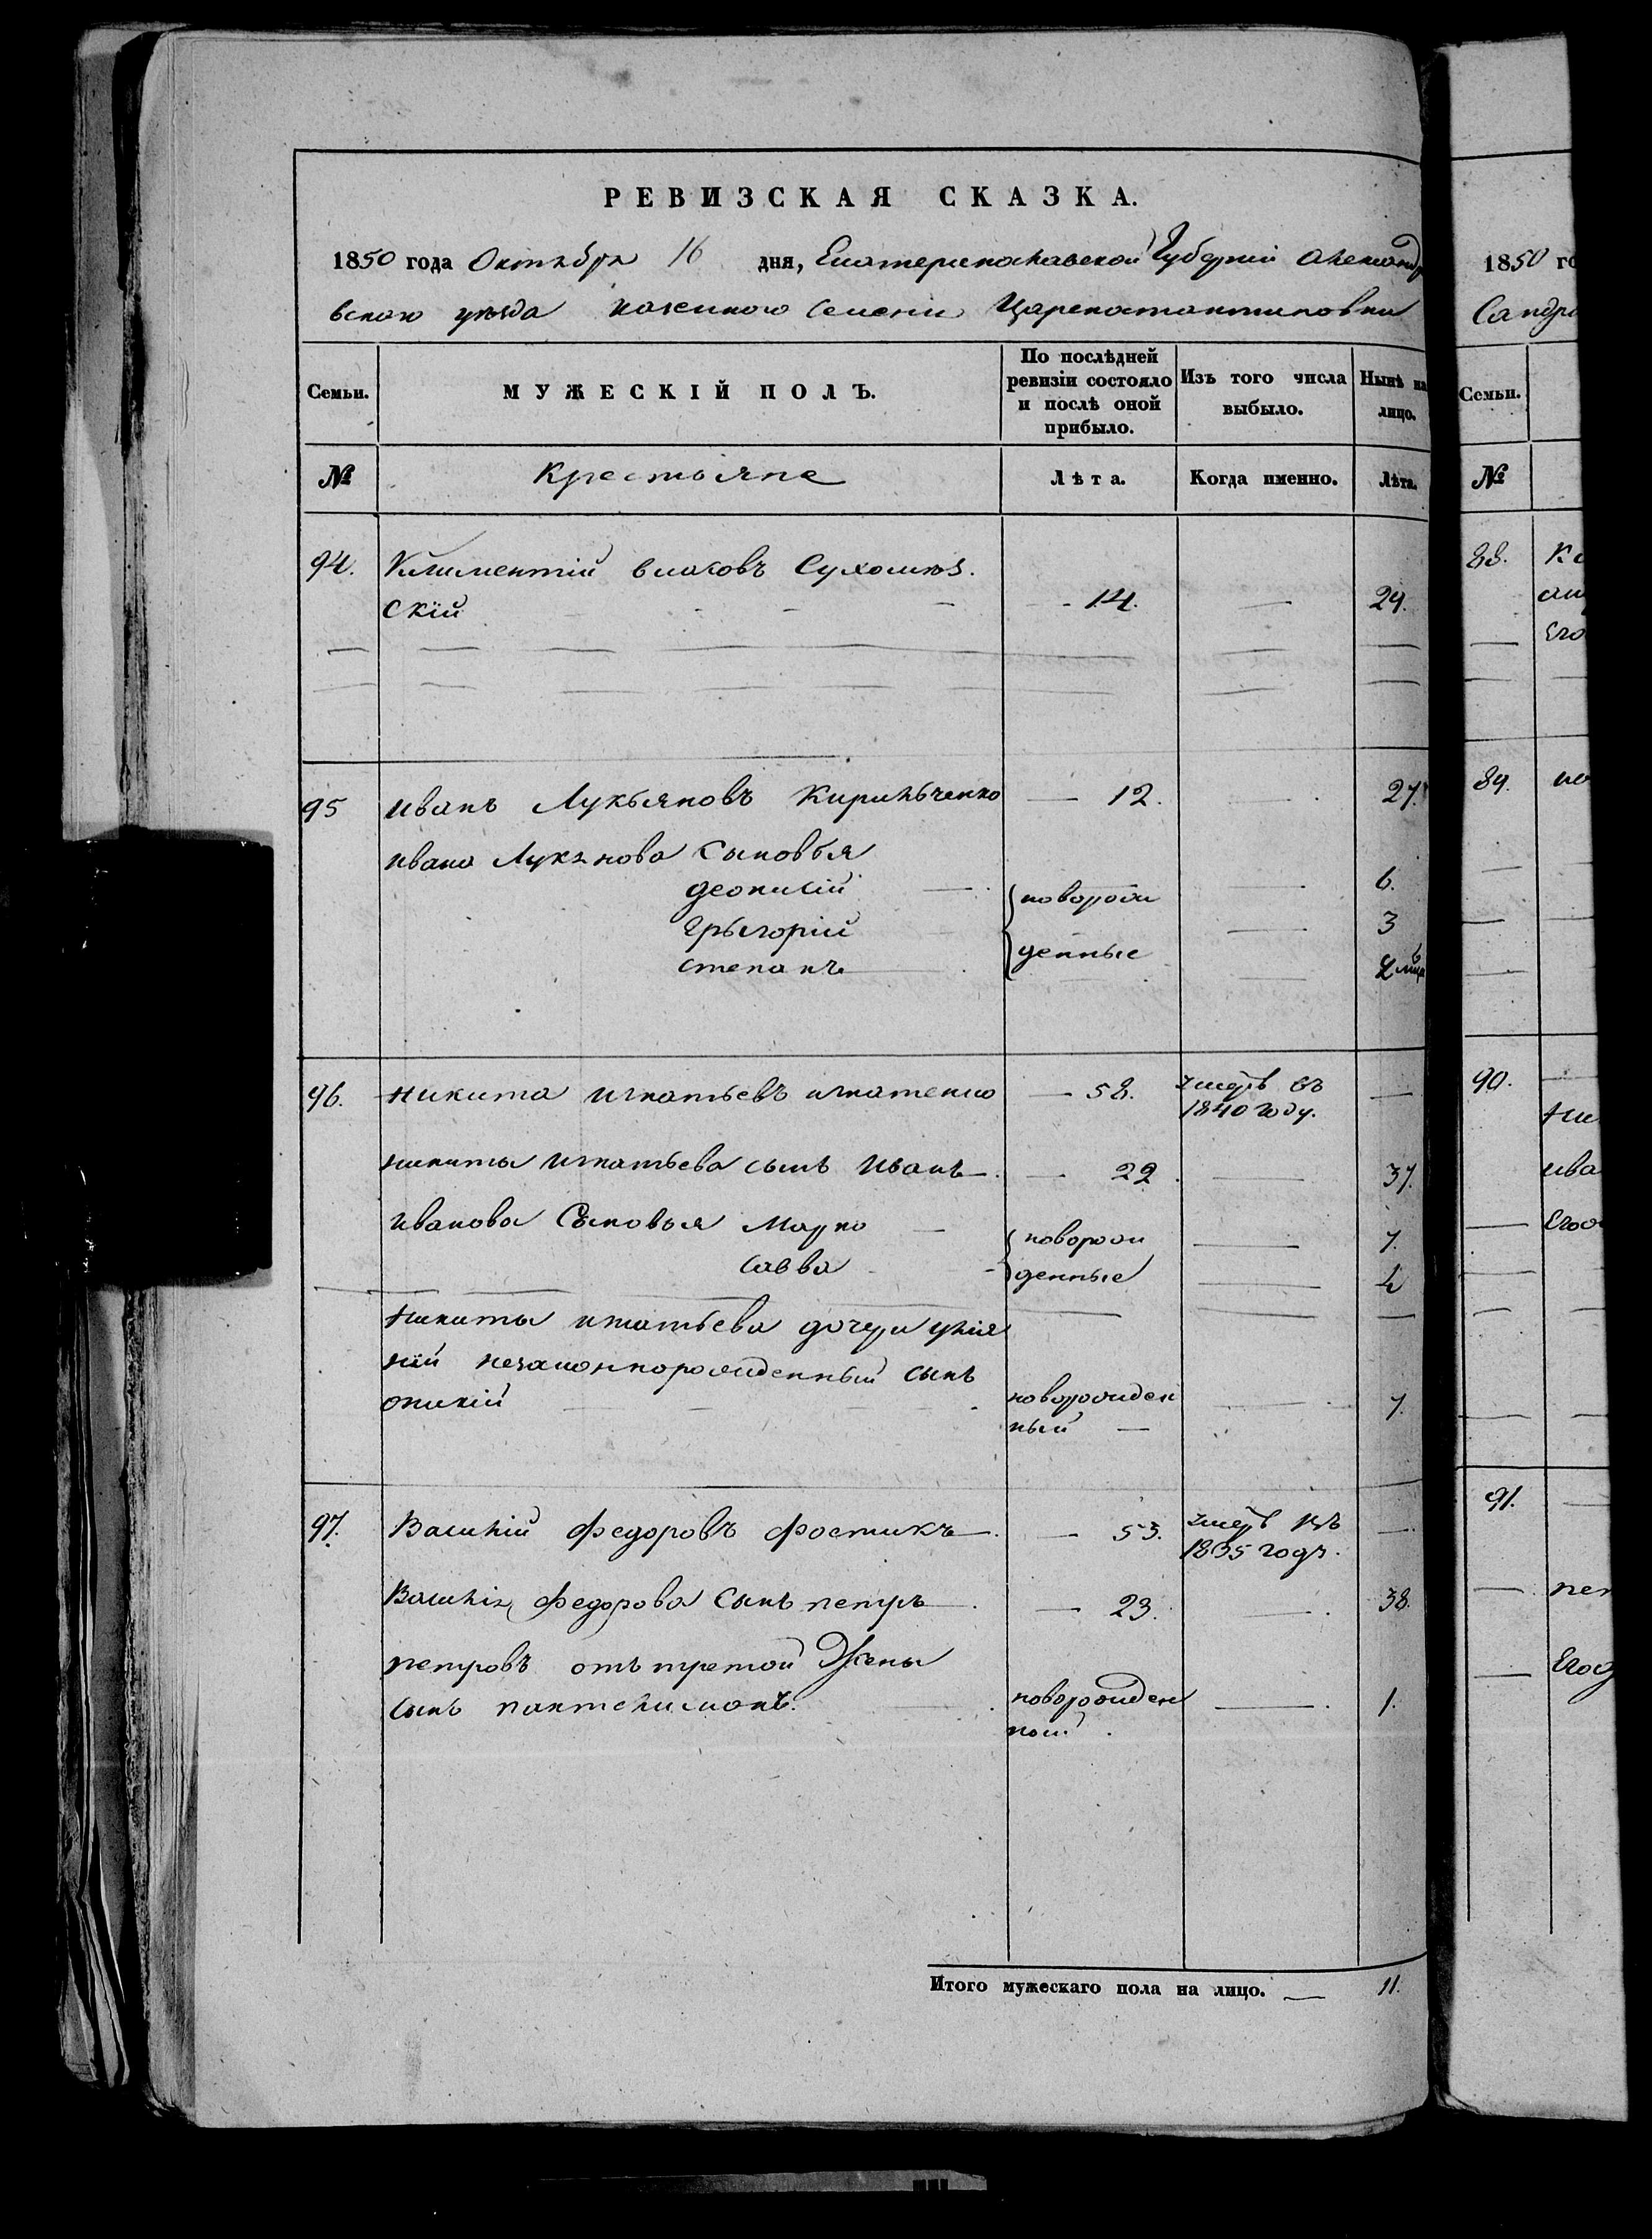 РЕВИЗСКАЯ СКАЗКА.
1850 года Октября 16 дня, Екатеринославской Губерніи Александ
вскаго уѣзда казенного Селенія Цареконстантиновки
Семьи. МУЖЕСКІЙ ПОЛЪ. По послѣдней ревизіи состояло и послѣ оной прибыло. Изъ того числа выбыло. Нынѣ на лицо.
№ Крестьяне Лѣта. Когда именно. Лѣта.
94. Климентій Сухомлѣ
скій 14. 29.
95 Иванъ Лукьяновъ Кирильченко 12. 27.
Ивана Лукянова Сыновья
деонисій новорож 6.
Грыгорій 3
степанъ денные
96. Никита Игнатьевъ Игнатенко 58. умеръ въ
1840 году.
Никиты Игнатьева сынъ Иванъ 22 37.
Иванова Сыновья Марко новорож 7.
Савва денные 4
Никиты игнатьева дочери
незаконнорожденный сынъ
онисій новорожден 7.
ный
97. Василій Федоровъ Фостикъ 53. умеръ въ
1835 годъ.
Василія Федорова Сынъ петръ 23. 38.
петровъ отъ третой Жены
сынъ пантелимонъ. новорожден 1.
ный
Итого мужескаго пола на лицо. 11.
1850 го
Сандро
Семьи.
№
88.
Его
89.
90.
Ива
Его
91.
пет
Его